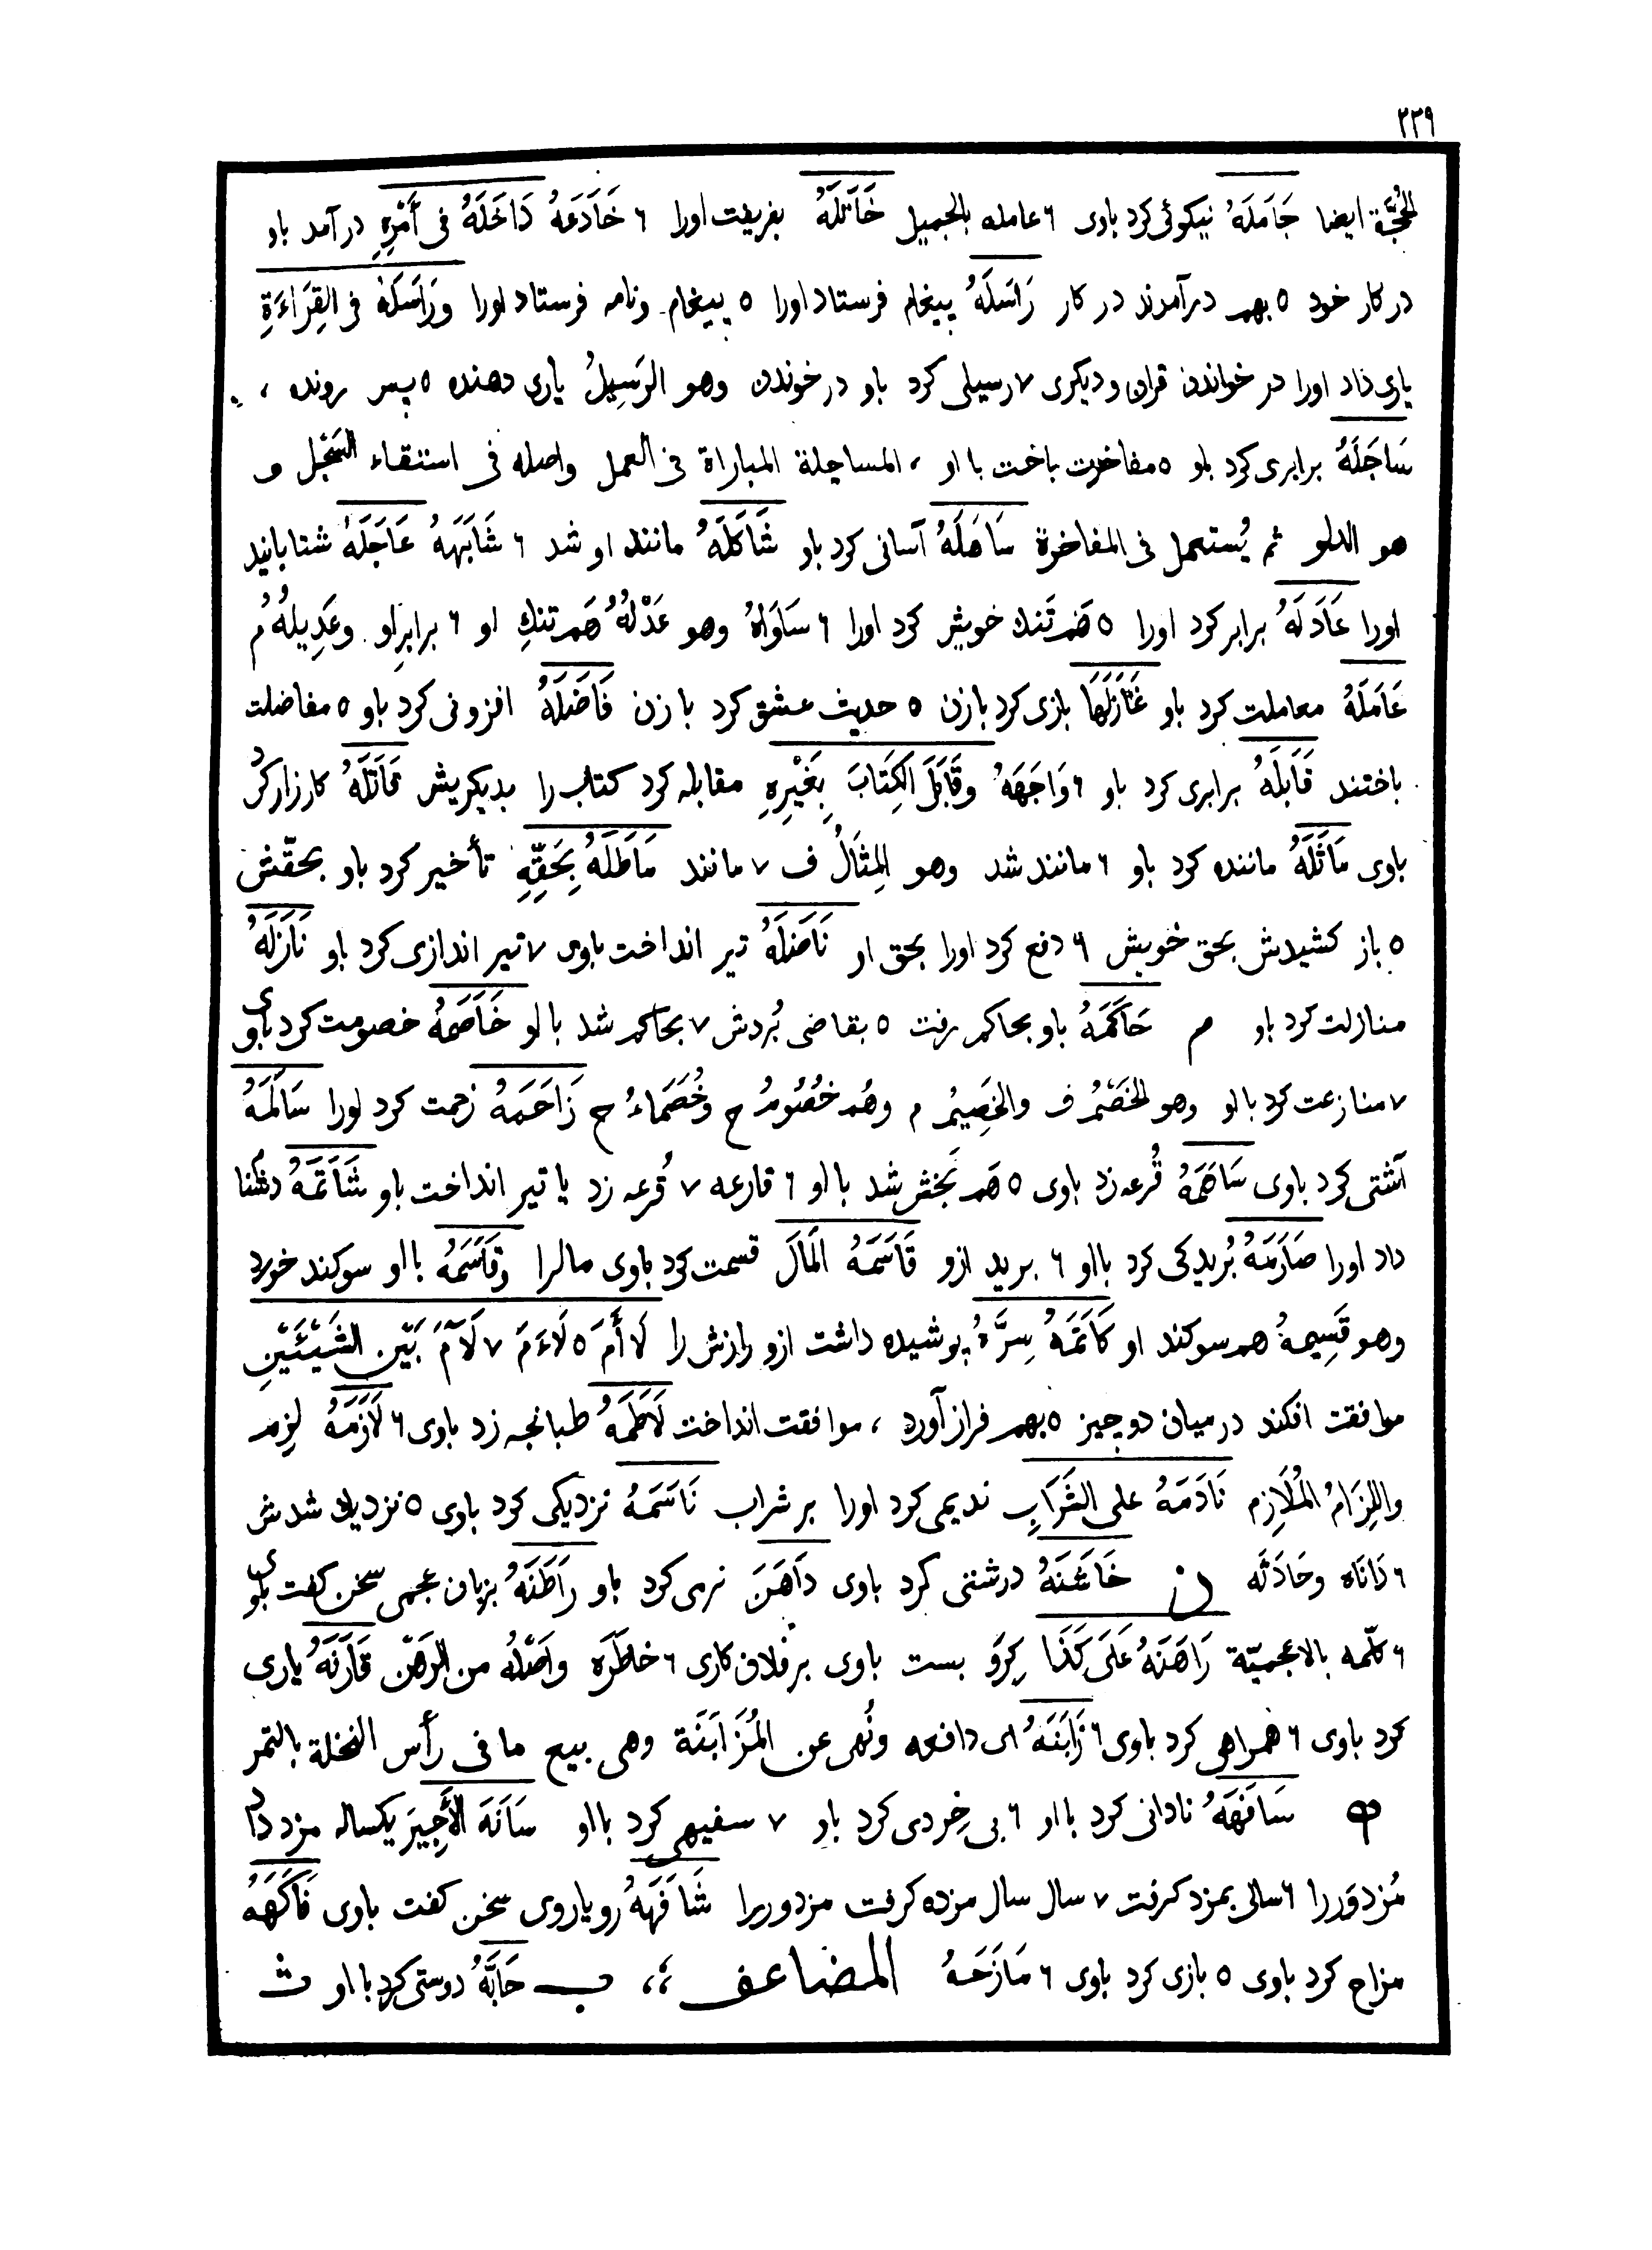 ٣٣٩
الحُجَّة ایضا جَامَلَهُ نیکوئی کرد باوی ٦ عامله بالجمیل خَاتَلَهُ بفریفت اورا ٦ خَادَعَهُ دَاخَلَهُ فی أَمْرِهِ در آمد باو
در کار خود ٥ بهم درآمدند در کار رَاسَلَهُ پیغام فرستاد اورا ٥ پیغام ونامه فرستاد اورا ورَاسَلَهُ فی القِرَاءَةِ
یاری داد اورا در خواندن قران و دیکری ٧ رسیلی کرد باو در خوندن وهو الرَسِیلُ یاری دهنده ٥ پس رونده ،
سَاجَلَهُ برابری کرد باو ٥ مفاخرت باخت با او ، المساجلة المباراة فی العمل واصله فی استقاء السَجْل و
هو الدلو ثم یُستعمل فی المفاخرة سَاهَلَهُ آسانی کرد باو شَاکَلَهُ مانند او شد ٦ شَابَهَهُ عَاجَلَهُ شتابانید
اورا عَادَلَهُ برابر کرد اورا ٥ هَم تَنك خویش کرد اورا ٦ سَاوَاهُ وهو عَدْلُهُ هَم تنكِ او ٦ برابرِ او وعَدِیلُهُ م
عَامَلَهُ معاملت کرد باو غَازَلَهَا بازی کرد بازن ٥ حدیث عشق کرد با زن فَاضَلَهُ افزونی کرد باو ٥ مفاضلت
باختند قَابَلَهُ برابری کرد باو ٦ وَاجَهَهُ وقَابَلَ الکِتَابَ بِغَیْرِهِ مقابله کرد کتاب را بدیکریش قَاتَلَهُ کارزار کرد
باوی مَاثَلَهُ ماننده کرد باو ٦ مانند شد وهو المِثَالُ ف ٧ مانند مَاطَلَهُ بِحَقِّهِ تأخیر کرد باو بحقّش
٥ باز کشیدش بحق خویش ٦ دفع کرد اورا بحق او نَاضَلَهُ تیر انداخت باوی ٧ تیر اندازی کرد باو نَازَلَهُ
منازلت کرد باو م حَاکَمَهُ باو بحاکم رفت ٥ بقاضی بُردش ٧ بحاکم شد با او خَاصَمَهُ خصومت کرد باوی
٧ منازعت کرد با او وهو الخَصْمُ ف والخَصِیمُ م وهُم خُصُومُ ج وخُصَمَاءُ ج زَاحَمَهُ زحمت کرد اورا سَالَمَهُ
آشتی کرد باوی سَاهَمَهُ قُرعه زد باوی ٥ هَم بَخش شد با او ٦ قارعه ٧ قُرعه زد یا تیر انداخت باو شَاتَمَهُ دشنام
داد اورا صَارَمَهُ بُریدکی کرد بااو ٦ برید ازو قَاسَمَهُ المَالَ قسمت کرد باوی مالرا وقَاسَمَهُ بااو سوکند خورد
وهو قَسِیمهُ هم سوکند او کَاتَمَهُ سِرَّهُ پوشیده داشت ازو رازش را لَا أَمَ ٥ لَاءَمَ ٧ لَآمَ بَیْن الشَیْئَیْنِ
موافقت افکند درمیان دو چیز ٥ بهم فراز آورد ، موافقت انداخت لَاطَمَهُ طبانجه زد باوی ٦ لَازَمَهُ لزِم
واللِزَامُ المُلَازِم نَادَمَهُ علی الشَرَابِ ندیمی کرد اورا بر شراب نَاسَمَهُ نزدیکی کرد باوی ٥ نزدیك شدش
٦ دَانَاه وحَادَثَه ن خَاشَنَهُ درشتی کرد باوی دَاهَنَ نرمی کرد باو رَاطَنَهُ بزبان عجمی سخن کفت باوی
٦ کلّمه بالاعجمیّة رَاهَنَهُ عَلَی کَذَا کِرَو بست باوی بر فلان کاری ٦ خاطَرَه واَصْلُه من الرَهْن قَارَنَهُ یاری
کرد باوی ٦ همراهی کرد باوی ٦ زَابَنَهُ ای دافعه ونُهی عن المُزَابَنَة وهی بیع ما فی رأس النخلة بالتمر
ه سَافَهَهُ نادانی کرد بااو ٦ بی خِردی کرد باو ٧ سفیهی کرد بااو سَانَهَ الأَجِیرَ یکساله مزد داد
مُزدوَررا ٦ سالی بمزد کرفت ٧ سال سال مزده کرفت مزدوررا شَافَهَهُ رویاروی سخن کفت باوی فَاکَهَهُ
مزاح کرد باوی ٥ بازی کرد باوی ٦ مَازَحَهُ المضاعف ،، ب حَابَّهُ دوستی کرد بااو ث